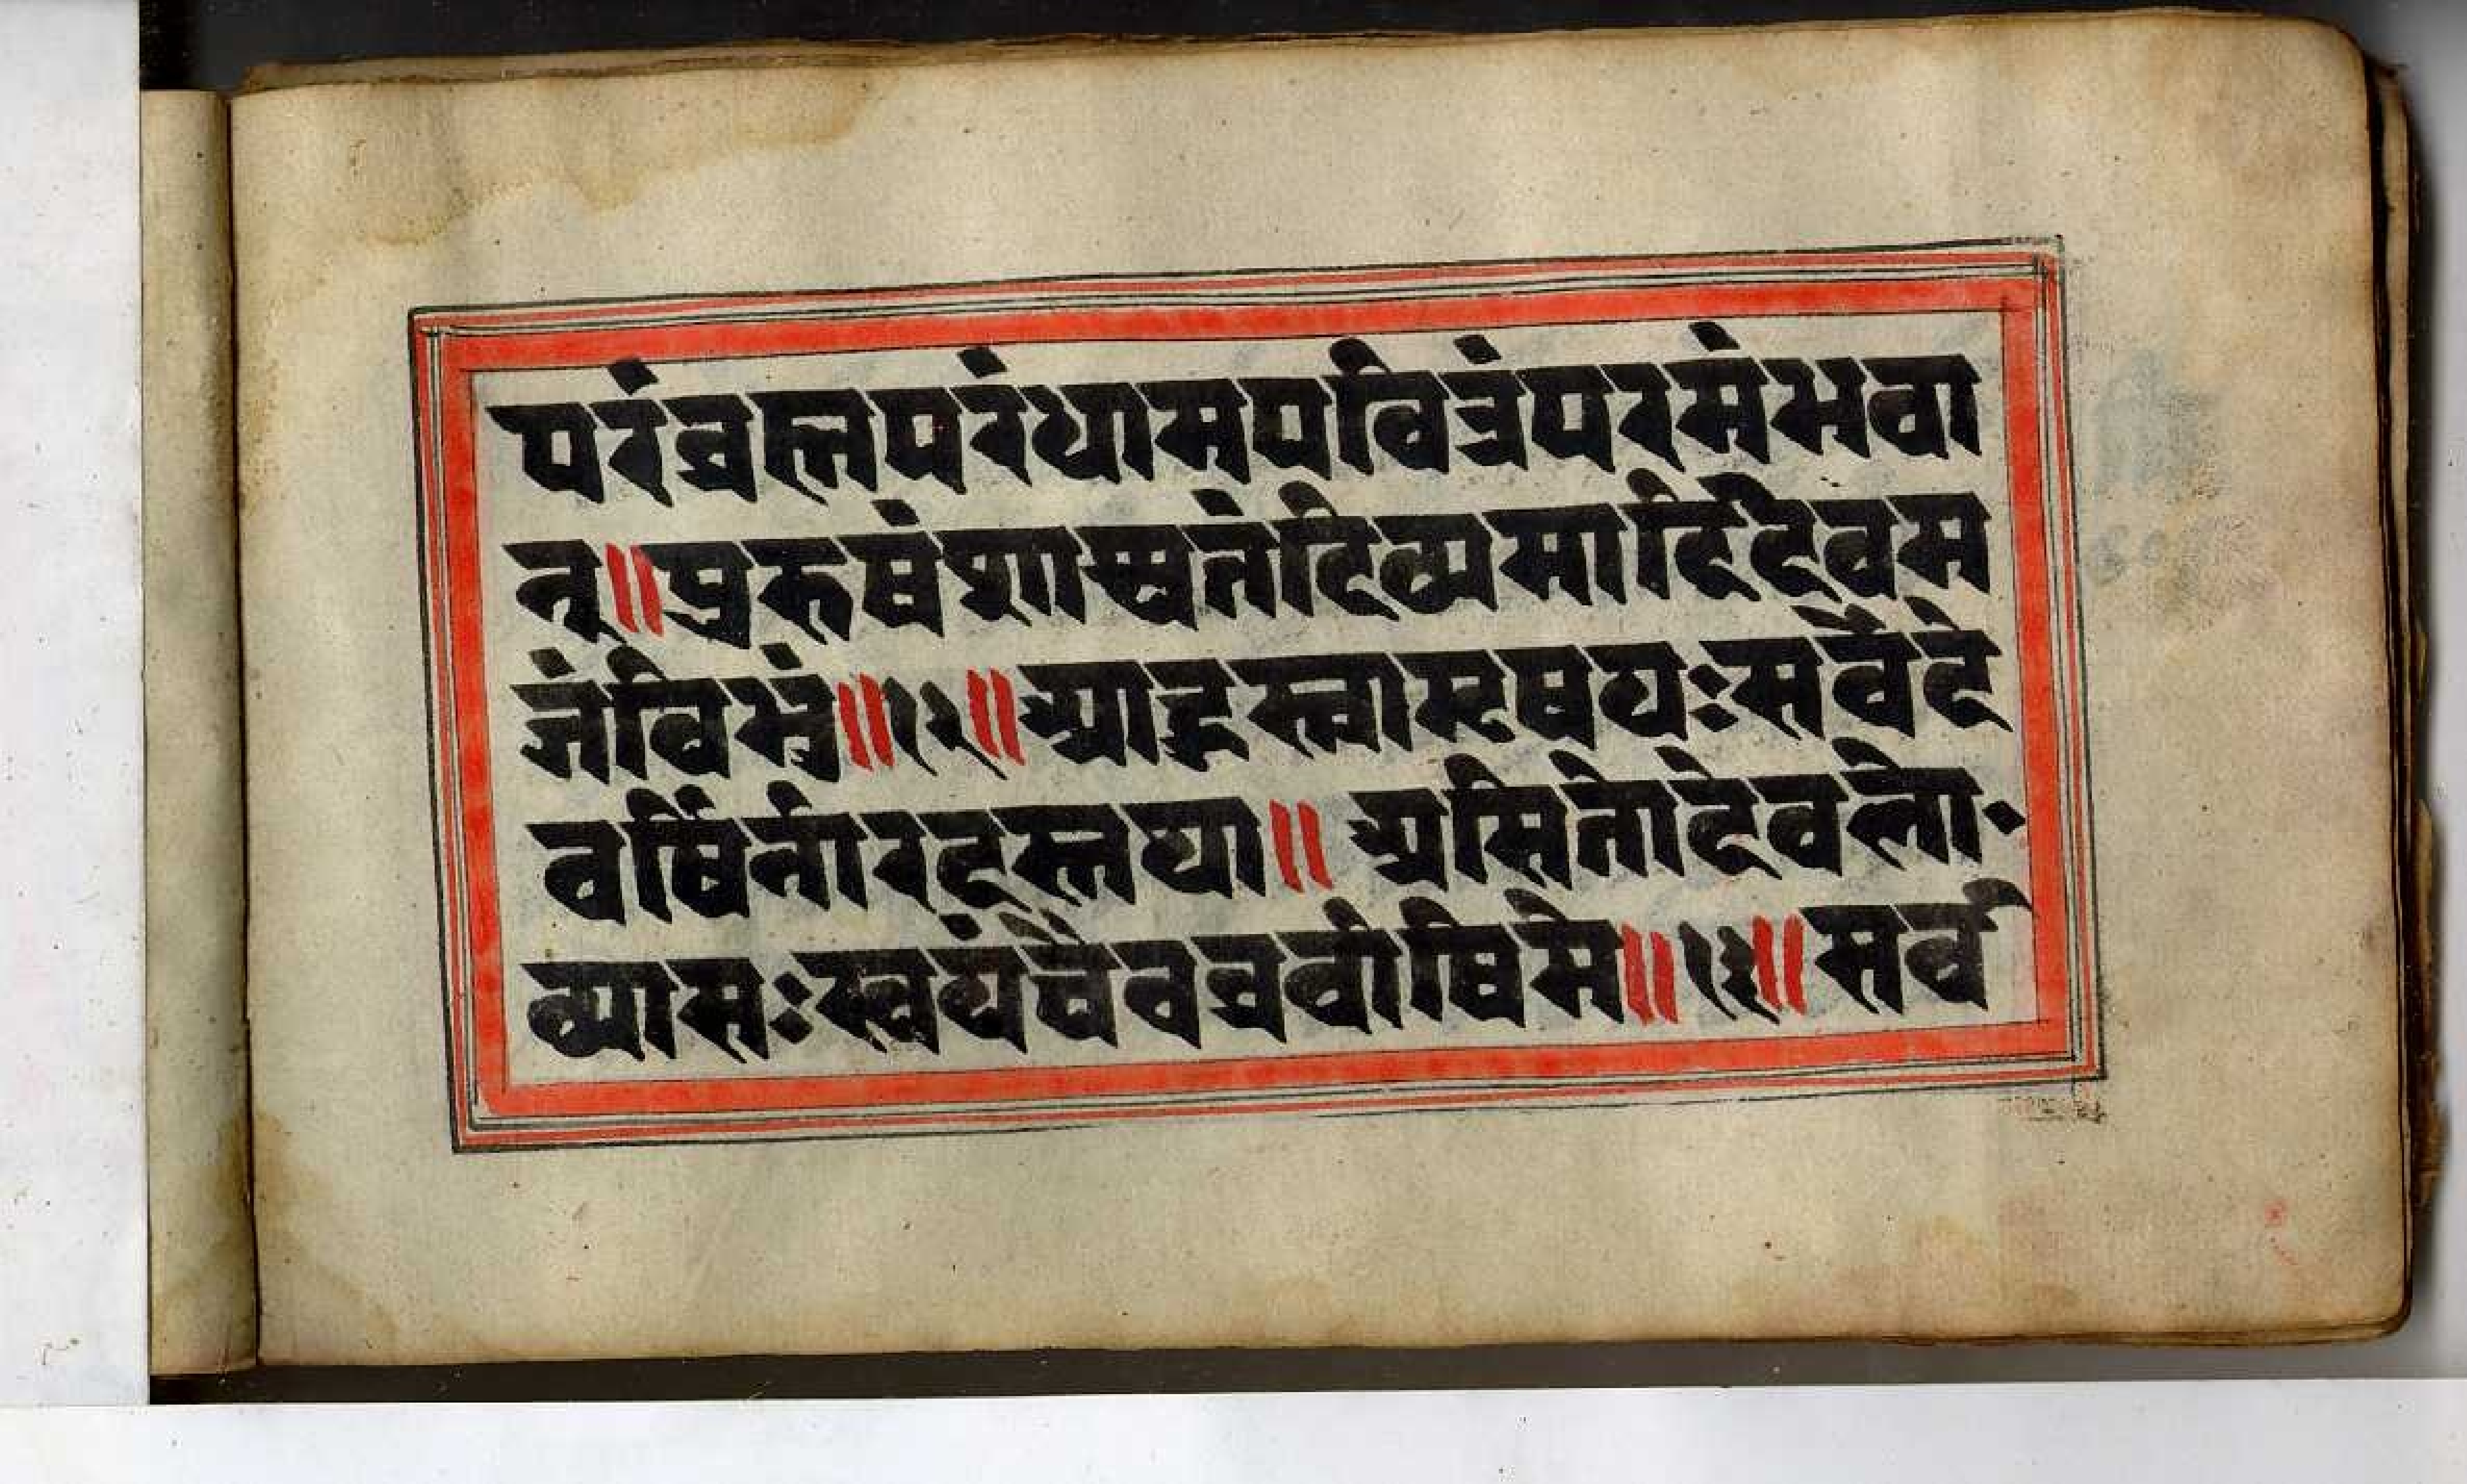 परंब्रह्मपरंधामपवित्रंपरमंभवा
न्॥पुरुषंशाश्वतंदिव्यमादिदेवम
जंविभुं॥१२॥आहुस्त्वामृषयःसर्वेदे
वर्षिर्नारदस्तथा॥असितोदेवलो
व्यासःस्वयंचैवब्रवीषिमे॥१३॥सर्व